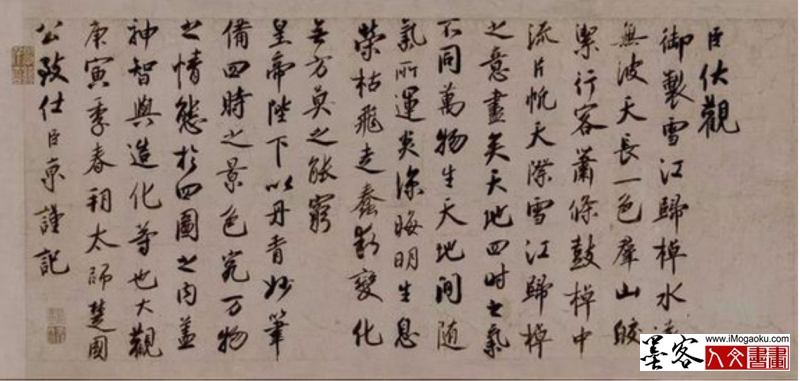 臣伏觀
御製雪江歸棹水遠
無波天長一色羣山皎
潔行客蕭條鼓棹中
流片帆天際雪江歸棹
之意盡矣天地四時之氣
不同萬物生天地間隨
氣所運炎涼晦明生息
榮枯飛走蠢動變化
無方莫之能窮
皇帝陛下以丹青妙筆
備四時之景色究万物
之情態於四圖之内蓋
神智與造化等也大觀
庚寅季春朔太師楚國
公致仕臣京謹記
墨客
www.iMogaoku.com
人文書畫